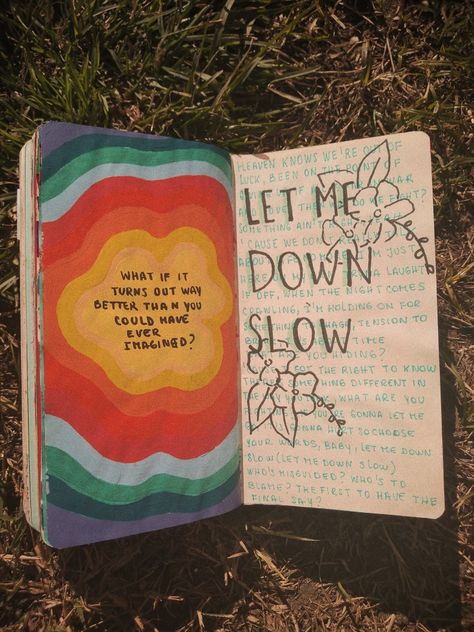 WHAT IF IT
TURNS OUT WAY
BETTER THAN YOU
COULD HAVE
EVER
IMAGINED?
LET ME
DOWN
SLOW
HEAVEN KNOWS WE'RE OUT OF
LUCK, BEEN ON THE POINT OF
IF WAR
LOVE DO WE FIGHT?
SOMETHING AIN'T
'CAUSE WE DON'T
I'M JUST
LAUGH IT
OFF, WHEN THE NIGHT COMES
CRAWLING, I'M HOLDING ON FOR
TENSION TO
TIME
ARE YOU HIDING?
THE RIGHT TO KNOW
DIFFERENT IN
WHAT ARE YOU
GONNA LET ME
GONNA HURT SO CHOOSE
YOUR WORDS, BABY, LET ME DOWN
SLOW (LET ME DOWN SLOW)
WHO'S MISGUIDED? WHO'S TO
BLAME? THE FIRST TO HAVE THE
FINAL SAY?